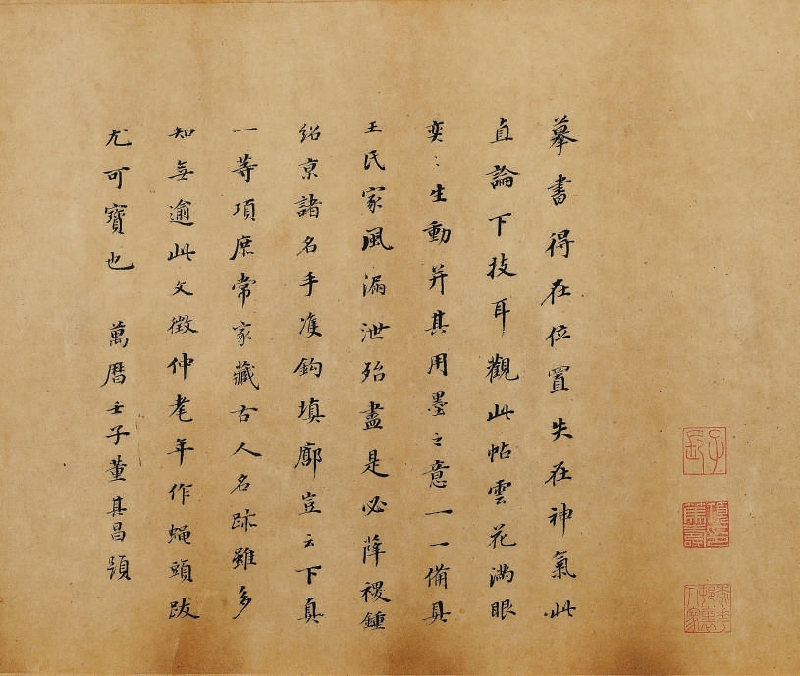 摹書得在位置失在神氣此
直論下技耳觀此帖雲花滿眼
奕〻生動并其用墨之意一一備具
王氏家風漏泄殆盡是必薛稷鍾
紹京諸名手雙鈎填廓豈云下真
一等項庶常家藏古人名跡雖多
知無逾此文徵仲耄年作蠅頭跋
尤可寶也 萬曆壬子董其昌題
子長